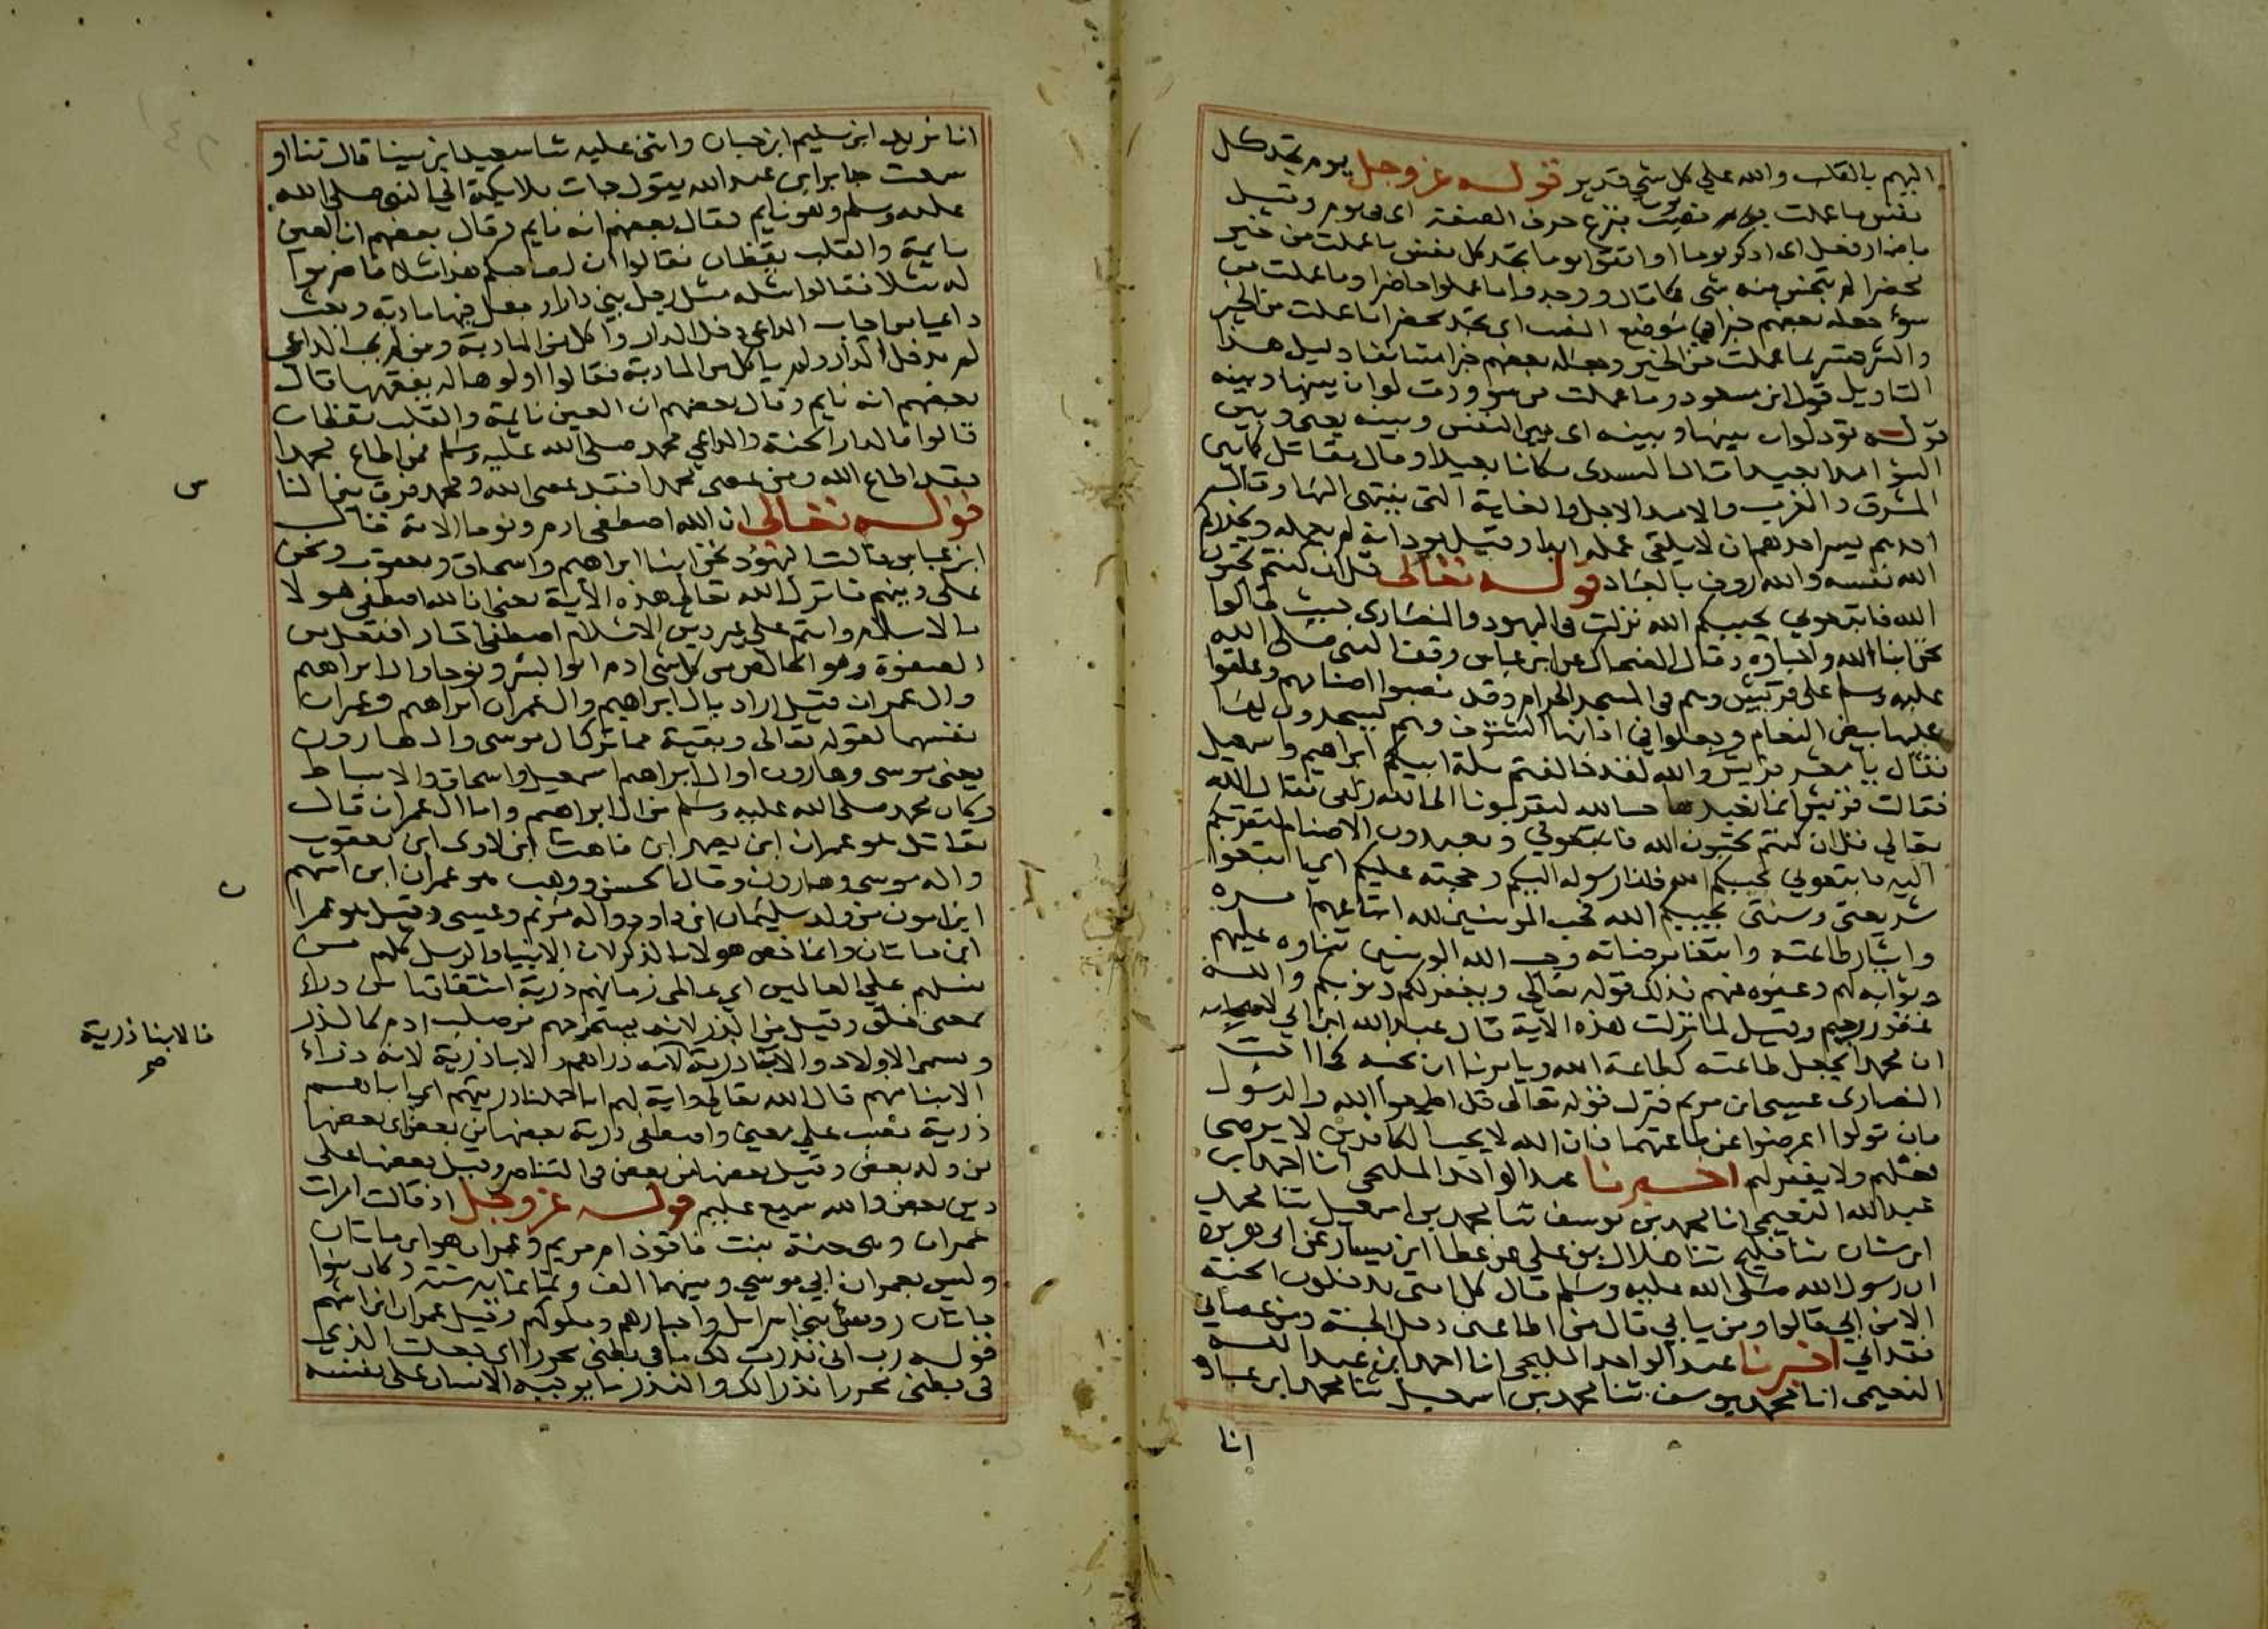 اليهم بالقلب والله علي كل شي قدير قوله عز وجل يوم تجد كل
نفس ما عملت نصب بنزع حرف الصفة اي في يوم وقيل
باضمار فعل اي اذكروا واتقوا يوما تجد كل نفس ما عملت من خير
محضرا لم يبخس منه شي كما قال ووجدوا ما عملوا حاضرا وما عملت من
سوء جعله بعضهم خبرا في موضع النصب اي تجد محضرا ما عملت من الخير
والشر فتسر بما عملت من الخير وجعله بعضهم خبرا مستانفا دليل هذا
التاويل قول ابن مسعود وما عملت من سو ودت لو ان بينها وبينه
قوله تود لو ان بينها وبينه اي بين النفس وبينه يعني وبين
السو امدا بعيدا قال السدي مكانا بعيدا وقال مقاتل كما بين
المشرق والمغرب والامد الاجل والغاية التي ينتهي اليها وقال
احدهم ان لا يلقي عمله ابدا وقيل يود انه لم يعمله ويحذركم
الله نفسه والله روف بالعباد قوله تعالى قل ان كنتم تحبون
الله فاتبعوني يحببكم الله نزلت في اليهود والنصارى حيث قالوا
نحن ابنا الله واحباوه وقال الضحاك عن ابن عباس وقف النبي صلى الله
عليه وسلم على قريش وهم في المسجد الحرام وقد نصبوا اصنامهم وعلقوا
عليها بيض النعام وجعلوا في اذانها الشنوف وهم يسجدون لها
فقال يا معشر قريش والله لقد خالفتم ملة ابيكم ابراهيم واسمعيل
فقالت قريش انما نعبدها حبا لله ليقربونا الى الله زلفى فقال الله
تعالي قل ان كنتم تحبون الله فاتبعوني وتعبدون الاصنام لتقربكم
اليه فاتبعوني يحببكم الله فانا رسوله اليكم وحجته عليكم اي اتبعوا
شريعتي وسنتي يحببكم الله فحب المومنين لله اتباعهم امره
وايثار طاعته وابتغا مرضاته وحب الله المومنين ثناوه عليهم
وثوابه لهم وعفوه عنهم فذلك قوله تعالى ويغفر لكم ذنوبكم والله
غفور رحيم وقيل لما نزلت هذه الاية قال عبد الله ابن ابي لاصحابه
ان محمدا يجعل طاعته كطاعة الله ويامرنا ان نحبه كما احبت
النصارى عيسى ابن مريم فنزل قوله تعالى قل اطيعوا الله والرسول
فان تولوا اعرضوا عن طاعتهما فان الله لا يحب الكافرين لا يرضى
فعلهم ولا يغفر لهم اخبرنا عبد الواحد المليحي انا احمد ابن
عبد الله النعيمي انا محمد بن يوسف ثنا محمد بن اسمعيل ثنا محمد
ابن سنان ثنا فليح ثنا هلال بن علي عن عطا ابن يسار عن ابي هريرة
ان رسول الله صلى الله عليه وسلم قال كل امتي يدخلون الجنة
الا من ابي قالوا ومن يابي قال من اطاعني دخل الجنة ومن عصاني
فقد ابي اخبرنا عبد الواحد المليحي انا احمد ابن عبد الله
النعيمي انا محمد يوسف ثنا محمد بن اسمعيل ثنا محمد ابن عبادة
انا
انا يزيد ابن سليم ابن حبان واثنى عليه ثنا سعيد ابن مينا قال ثنا او
سمعت جابر ابن عبد الله يقول جات ملايكة الي النبي صلى الله
عليه وسلم وهو نايم فقال بعضهم انه نايم وقال بعضهم ان العين
نايمة والقلب يقظان فقالوا ان لصاحبكم هذا مثلا فاضربوا
له مثلا فقالوا مثله مثل رجل بني دارا وجعل فيها مادبة وبعث
داعيا من اجاب الداعي دخل الدار واكل من المادبة ومن لم يجب الداعي
لم يدخل الدار ولم ياكل من المادبة فقالوا اولوها له يفقهها قال
بعضهم انه نايم وقال بعضهم ان العين نايمة والقلب يقظان
قالوا فالدار الجنة والداعي محمد صلى الله عليه وسلم فمن اطاع محمدا
فقد اطاع الله ومن عصى محمدا فقد عصى الله ومحمد فرق بين الناس
قوله تعالى ان الله اصطفى ادم ونوحا الاية قال
ابن عباس قالت اليهود نحن ابنا ابراهيم واسحاق ويعقوب ونحن
على دينهم فانزل الله تعالى هذه الاية يعني ان الله اصطفى هولا
بالاسلام وانتم علي غير دين الاسلام اصطفى اختار افتعل من
الصفوة وهو الخالص من كل شي ادم ابو البشر ونوحا وال ابراهيم
وال عمران قيل اراد بال ابراهيم وال عمران ابراهيم وعمران
نفسهما لقوله تعالى وبقية مما ترك ال موسى وال هارون
يعني موسى وهارون وال ابراهيم اسمعيل واسحاق والاسباط
وكان محمد صلى الله عليه وسلم من ال ابراهيم واما ال عمران قال
مقاتل هو عمران ابن يصهر ابن قاهث ابن لاوى ابن يعقوب
واله موسى وهارون وقال الحسن ووهب هو عمران ابن اشهم ن
ابن امون من ولد سليمان ابن داود واله مريم وعيسى وقيل هو عمران
ابن ماتان وانما خص هولا بالذكر لان الانبيا والرسل كلهم من
نسلهم علي العالمين اي عالمي زمانهم ذرية اشتقاقها من ذرا
بمعنى خلق وقيل من الذر لانه يستخرجهم من صلب ادم كالذر
ويسمى الاولاد والابا ذرية لانه ذراهم والابا ذرية لانه ذراء
فالابنا ذرية صح
الابنا منهم قال الله تعالى واية لهم انا حملنا ذريتهم اي اباهم
ذرية نصب علي معنى واصطفى ذرية بعضها من بعض اي بعضها
من ولد بعض وقيل بعضها من بعض في التناصر وقيل بعضها على
دين بعض والله سميع عليم قوله عز وجل اذ قالت امرات
عمران وهي حنة بنت فاقوذ ام مريم وعمران هو ابن ماتان
وليس بعمران ابي موسي وبينهما الف وثمانماية سنة وكان بنوا
ماتان روس بني اسرايل واحبارهم وملوكهم وقيل عمران ابن اشهم
قوله رب اني نذرت لك ما في بطني محررا اي جعلت الذي
في بطني محررا نذرا لك والنذر ما يوجبه الانسان على نفسه
س